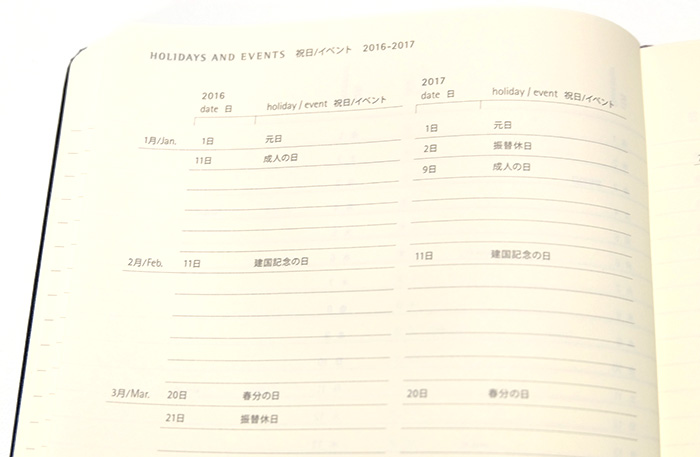 HOLIDAYS AND EVENTS 祝日/イベント 2016-2017
2016
date 日 holiday / event 祝日/イベント
1月/Jan. 1日 元日
11日 成人の日
2月/Feb. 11日 建国記念の日
3月/Mar. 20日 春分の日
21日 振替休日
2017
date 日 holiday / event 祝日/イベント
1日 元日
2日 振替休日
9日 成人の日
11日 建国記念の日
20日 春分の日